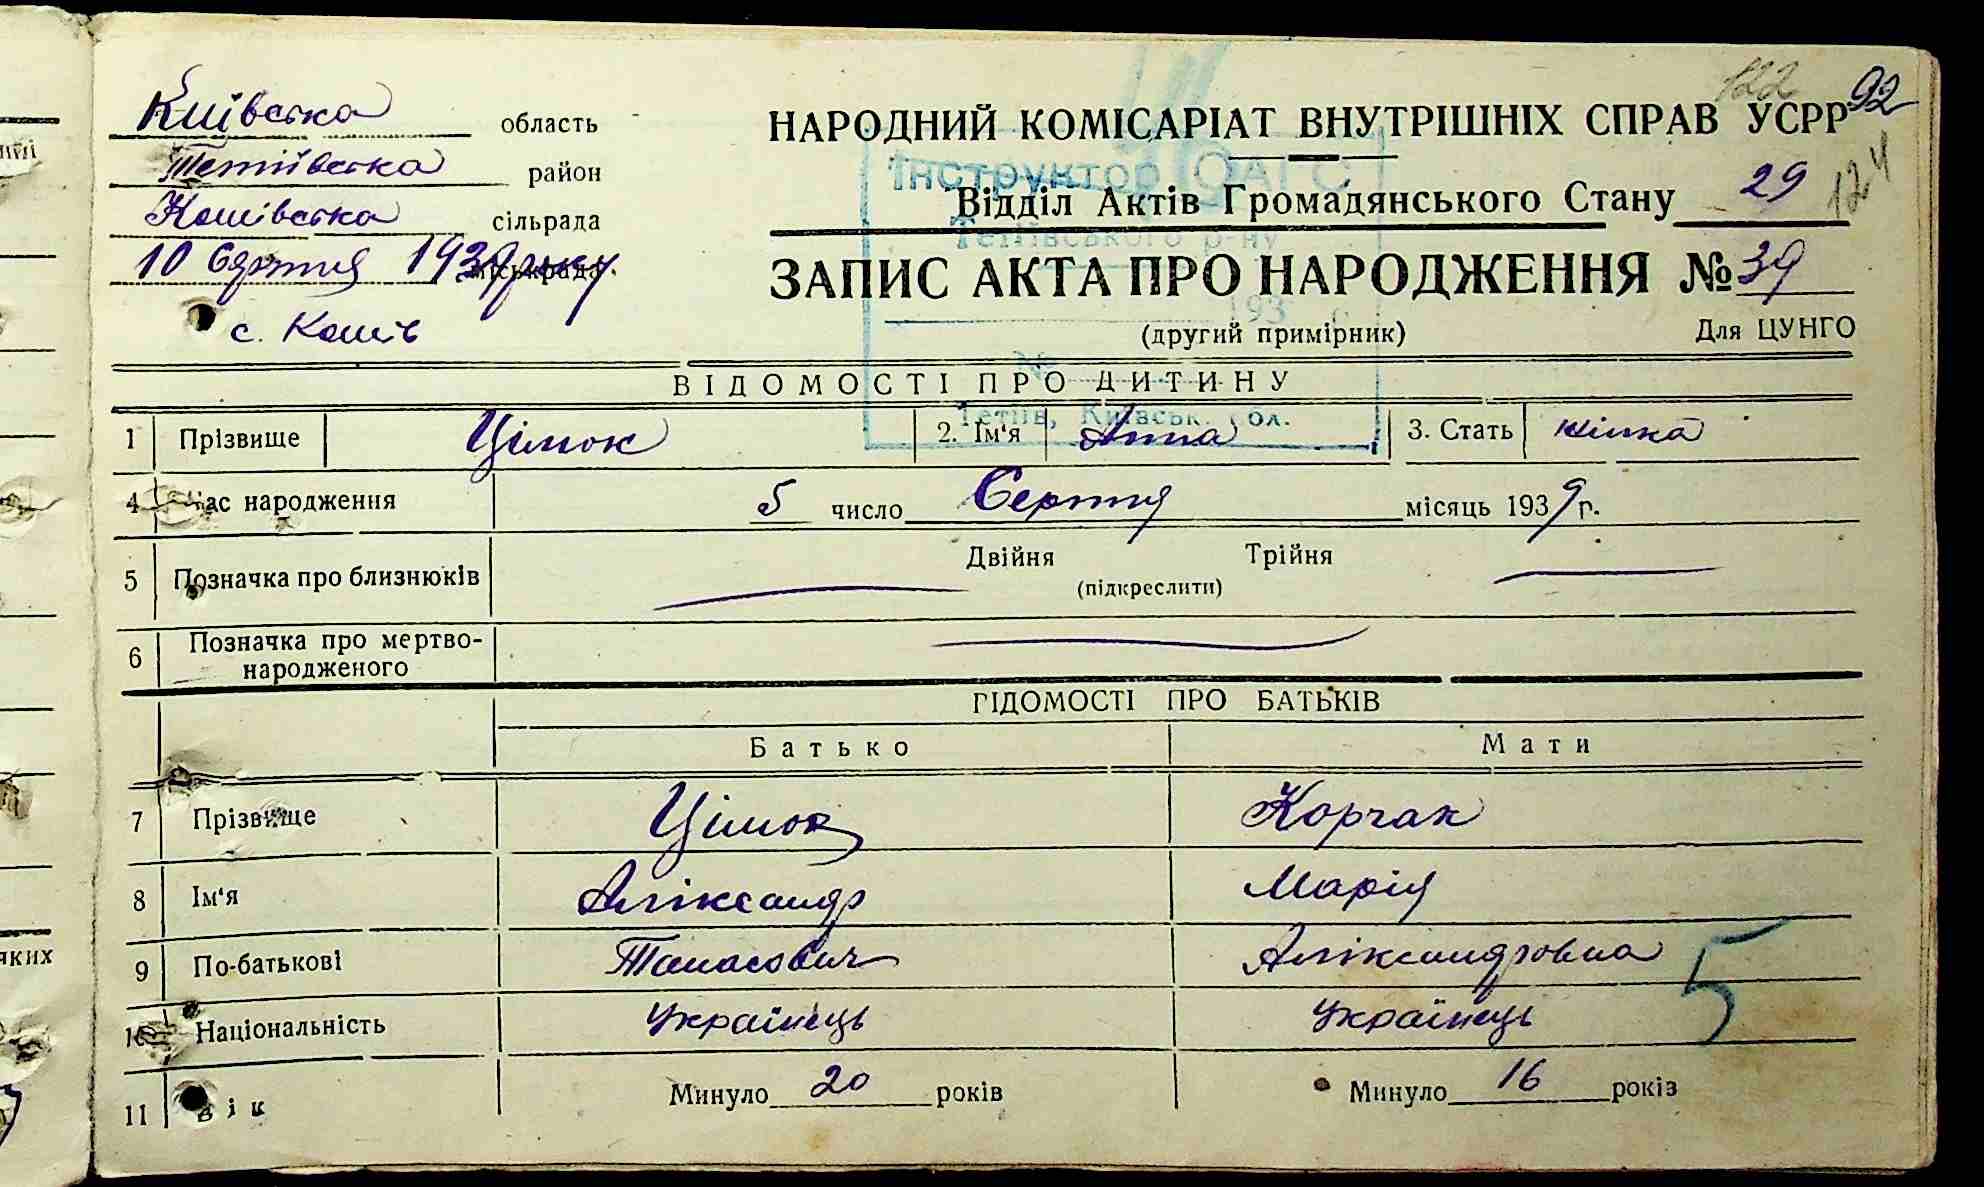 Київська область
Тетіївська район
Кошівська сільрада
10 Серпня 1939 року міськрада
с. Кошів
122 92
124
НАРОДНИЙ КОМІСАРІАТ ВНУТРІШНІХ СПРАВ УСРР
Інструктор ОАГС
Відділ Актів Громадянського Стану 29
Тетіївського р-ну
ЗАПИС АКТА ПРО НАРОДЖЕННЯ № 39
193 р.
(другий примірник) Для ЦУНГО
№
ВІДОМОСТІ ПРО ДИТИНУ
Тетіїв, Київськ. обл.
1 Прізвище Цімок 2. Ім'я Анна 3. Стать жінка
4 Час народження 5 число Серпня місяць 1939 р.
5 Позначка про близнюків Двійня Трійня
(підкреслити)
6 Позначка про мертво-
народженого
ВІДОМОСТІ ПРО БАТЬКІВ
Батько Мати
7 Прізвище Цімок Корчак
8 Ім'я Аліксандр Марія
9 По-батькові Танасович Аліксандровна
5
10 Національність Українець Українець
11 Вік Минуло 20 років Минуло 16 років